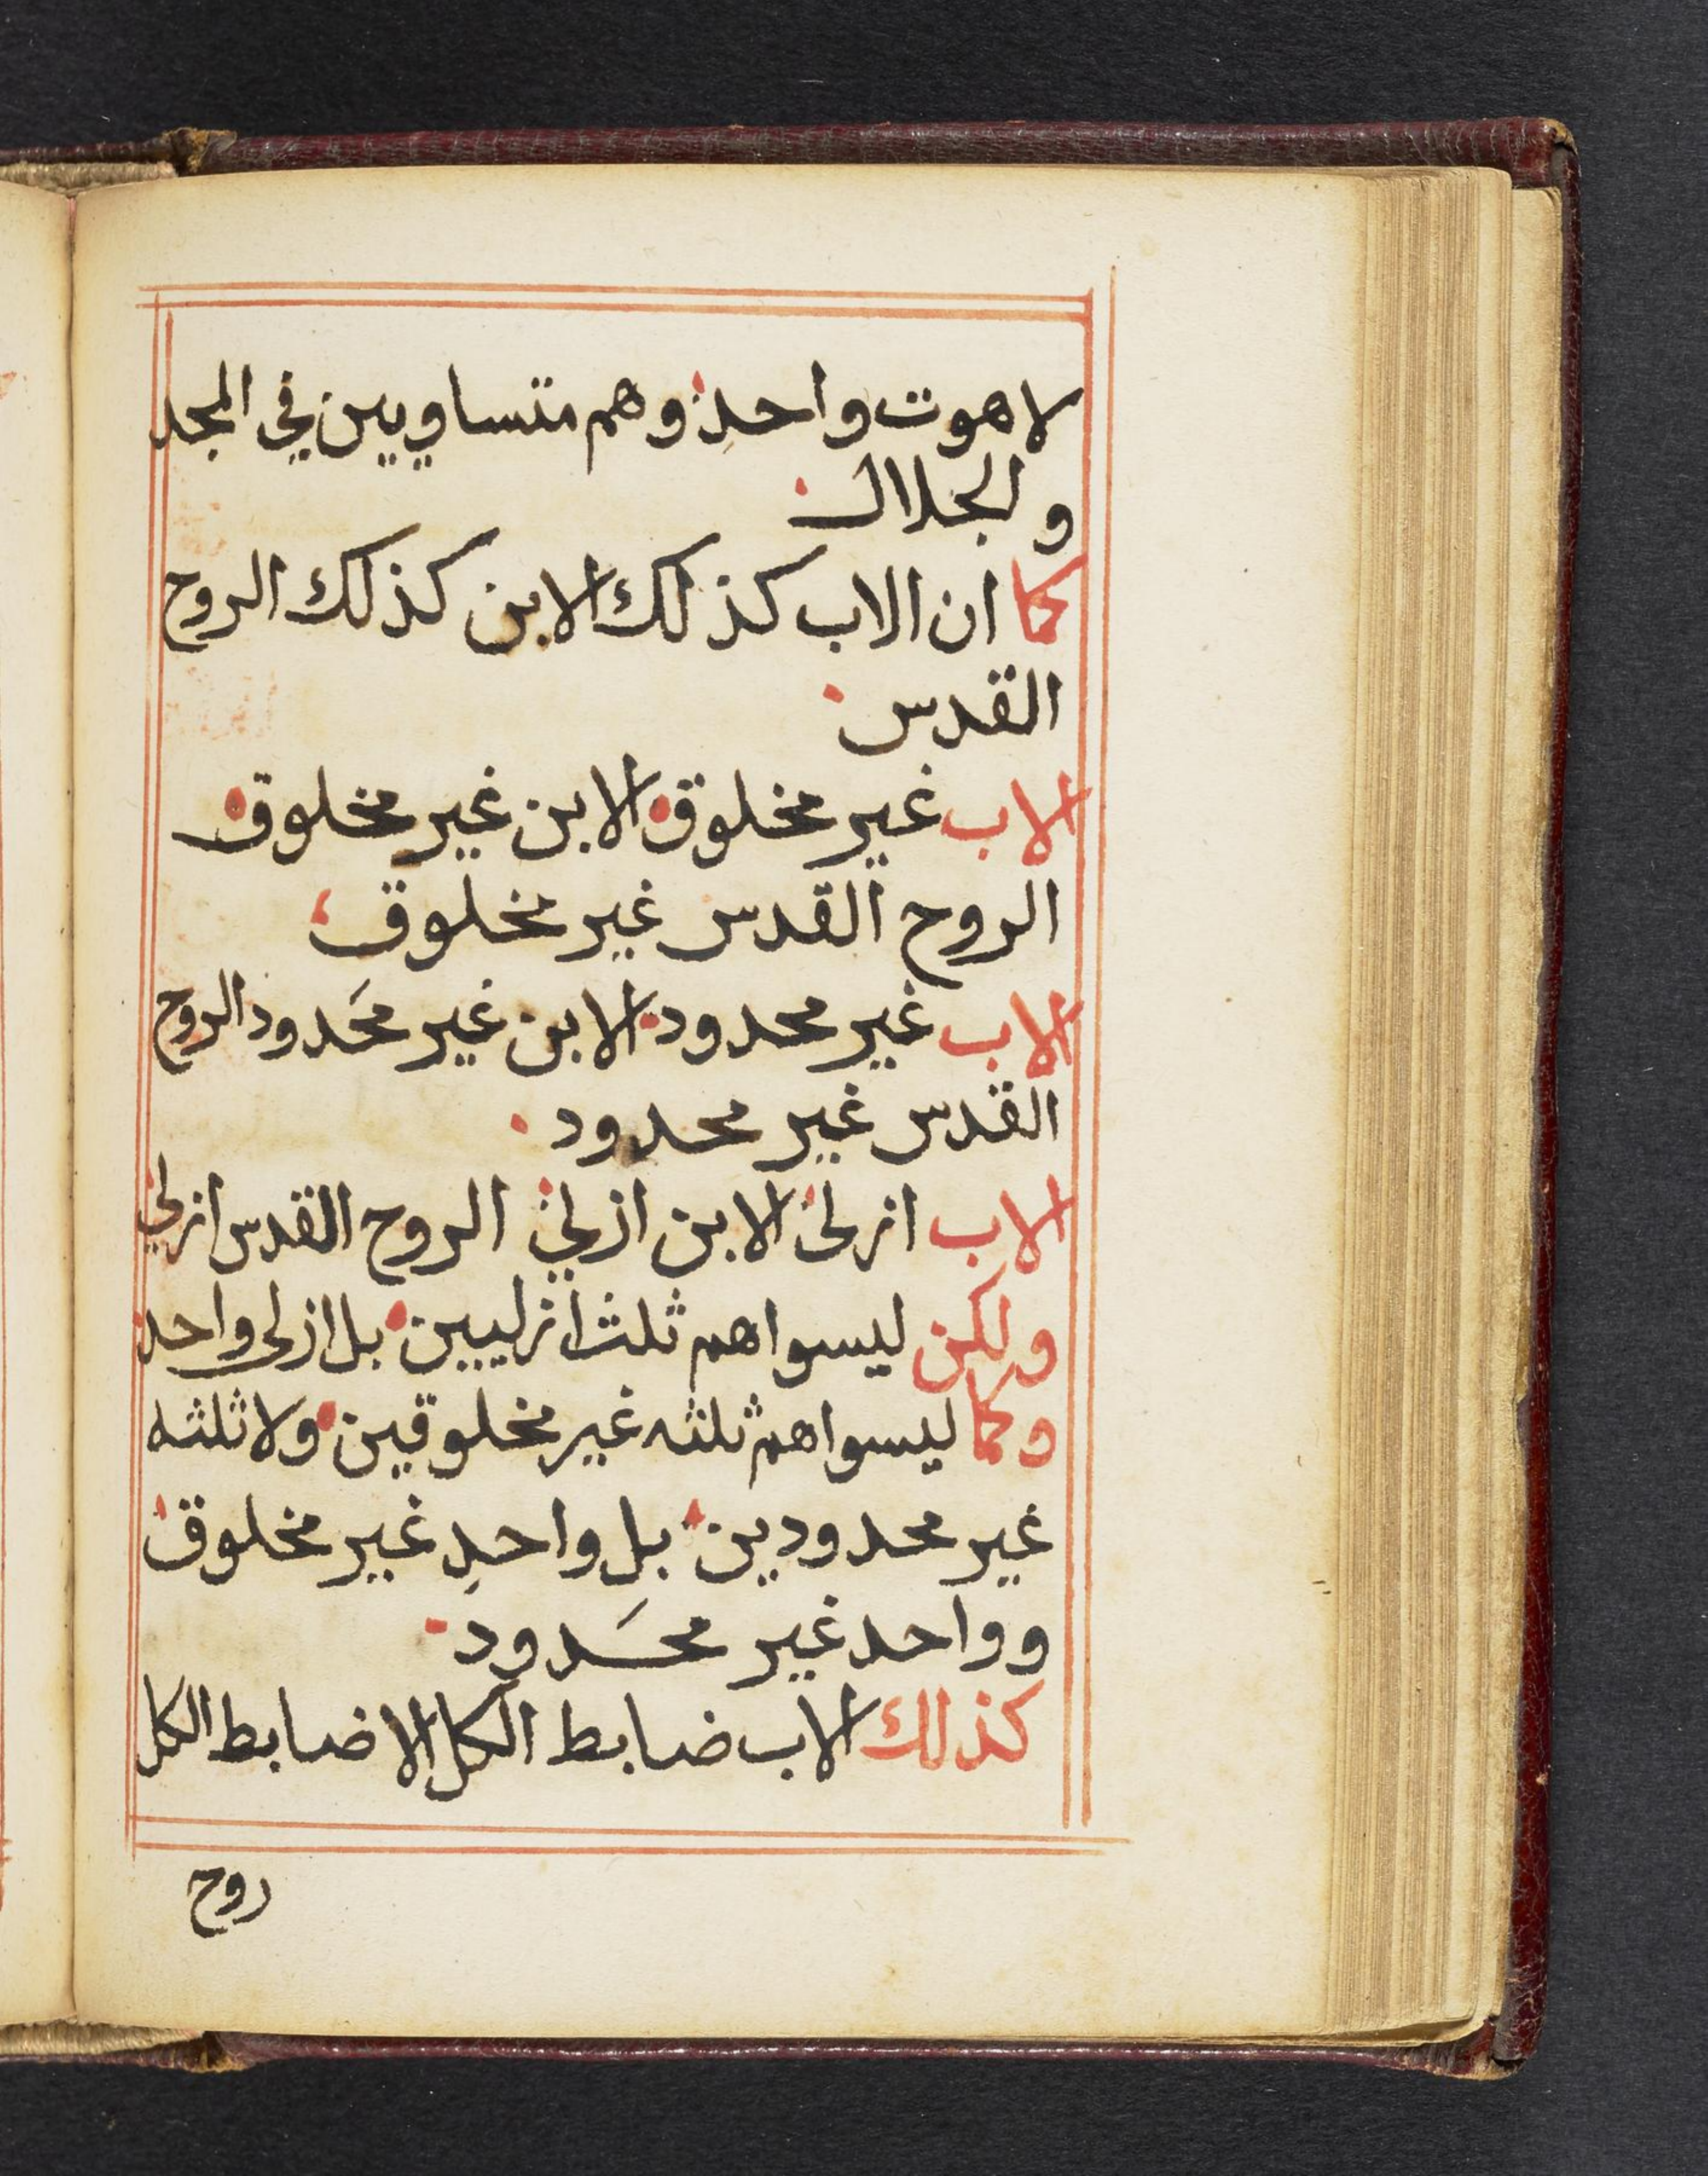 لاهوت واحد وهم متساويين في المجد
ولجلال
كما ان الاب كذلك الابن كذلك الروح
القدس
الاب غير مخلوق الابن غير مخلوق
الروح القدس غير مخلوق
الاب غير محدود الابن غير محَدود الروح
القدس غير محدود
الاب ازلي الابن ازلي الروح القدس ازلي
ولكن ليسوا هم ثلث ازليين بل ازلي واحد
وكما ليسوا هم ثلثه غير مخلوقين ولا ثلثه
غير محدودين بل واحدِ غير مخلوق
وواحد غير محَدود
كذلك الاب ضابط الكل الا ضابط الكل
روح